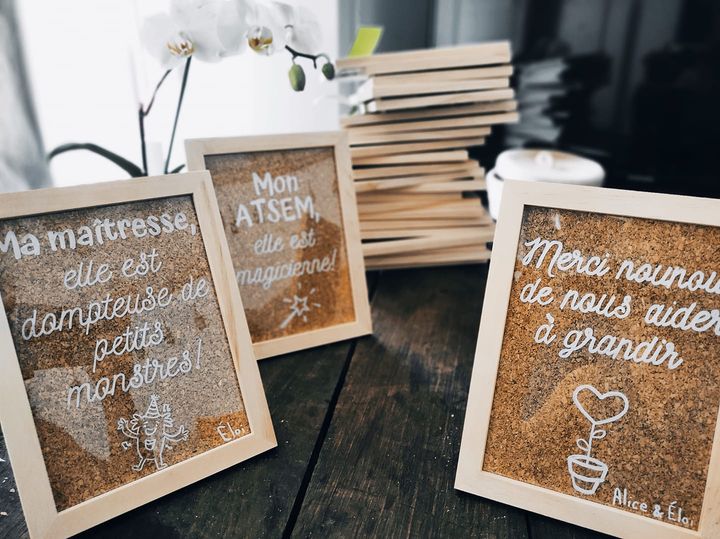 Ma maîtresse,
elle est
dompteuse de
petits
monstres!
Éloi
Mon
ATSEM,
elle est
magicienne!
Merci nounou
de nous aider
à grandir
Alice & Éloi